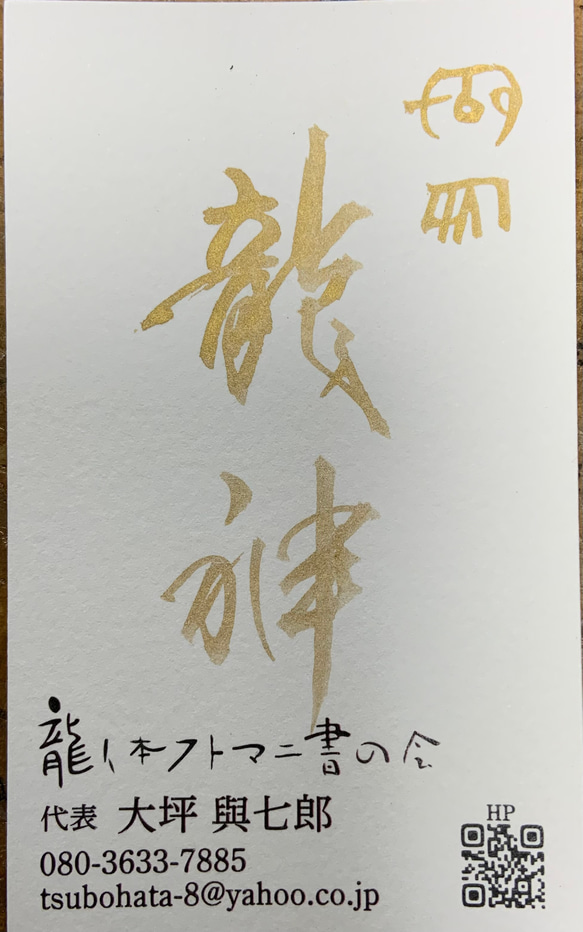 龍神
龍体フトマニ書の会
代表 大坪 與七郎
080-3633-7885
tsubohata-8@yahoo.co.jp
HP